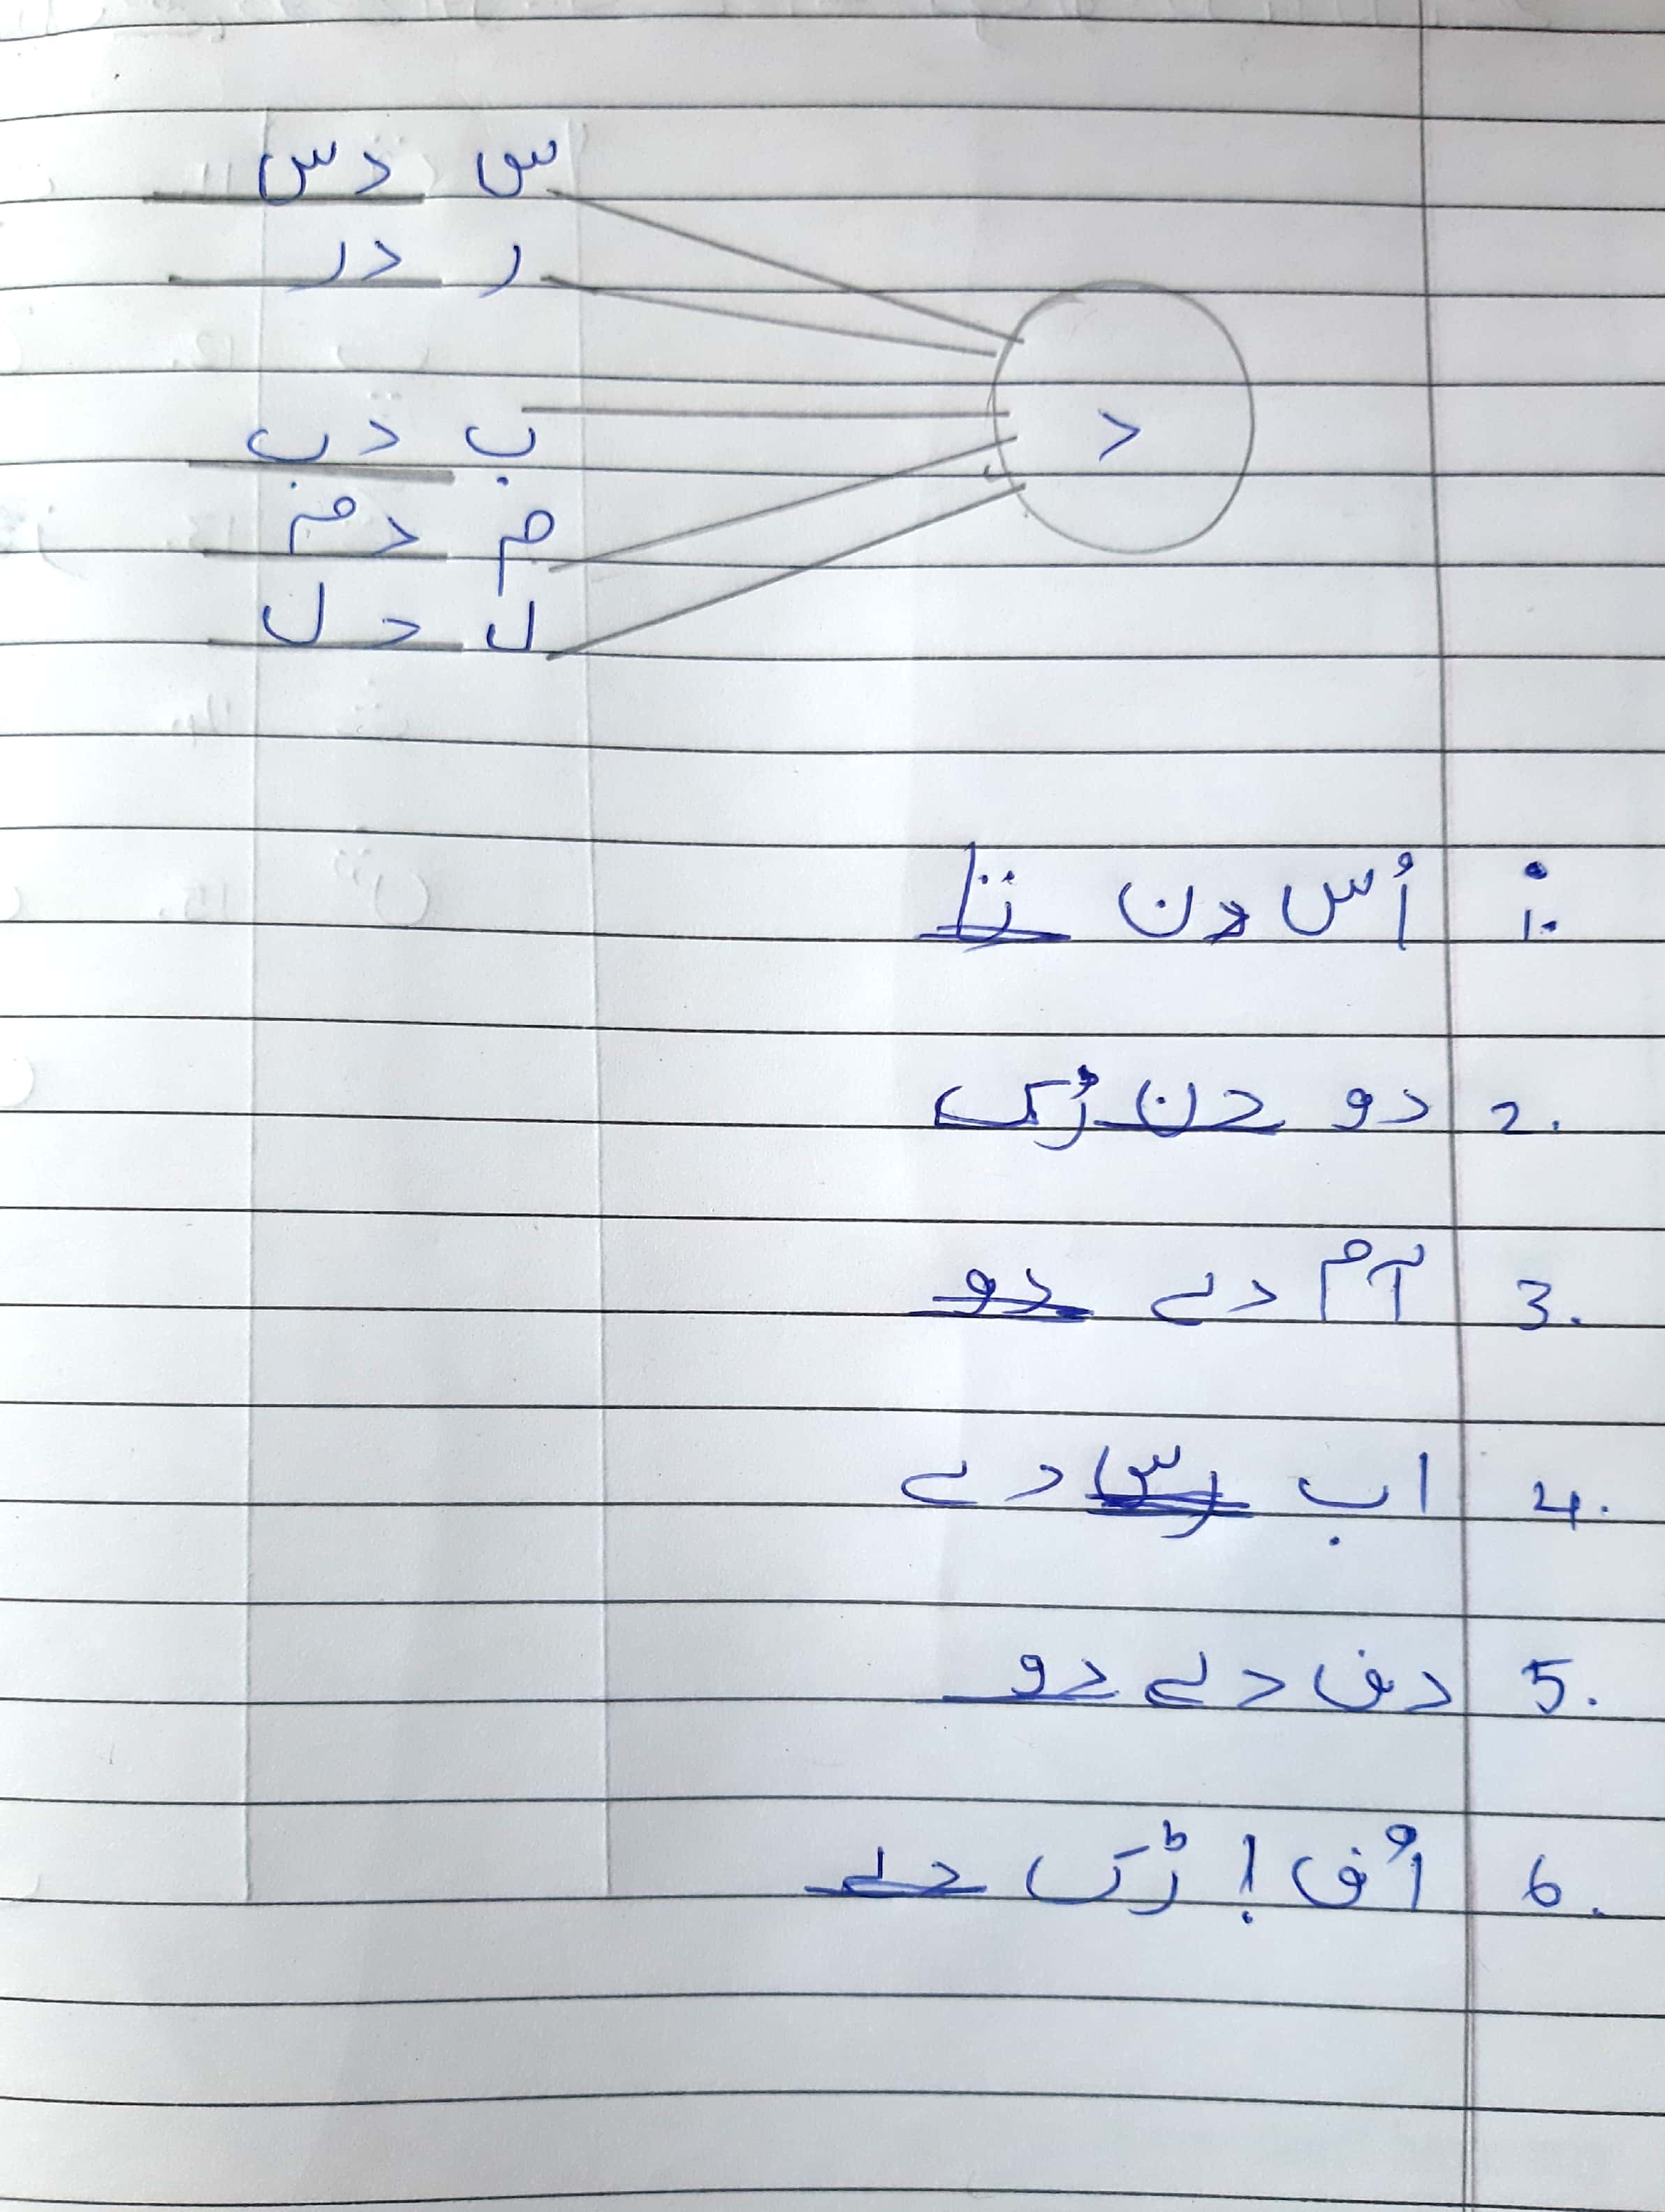 س دس
ر در
د
ب دب
م دم
ل دل
1. اُس دن
2. دو دن رُک
3. آم دے دو
4. اب رس دے
5. دف دے دو
6. اُف! رُک دے